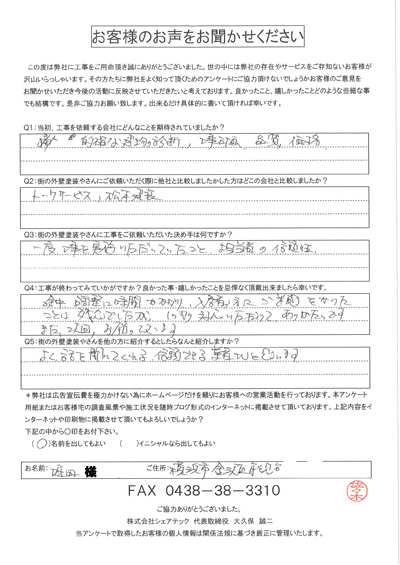 お客様のお声をお聞かせください
この度は弊社に工事をご用命頂き誠にありがとうございました。世の中には弊社の存在やサービスをご存知ないお客様が
沢山いらっしゃいます。その方たちに弊社をよく知って頂くためのアンケートにご協力頂けないでしょうかお客様のご意見を
お聞かせいただき今後の活動に反映させていただきたいと考えております。良かったこと、嬉しかったことどのような些細な事
でも結構です。是非ご協力お願い致します。出来るだけ具体的に書いて頂ければ幸いです。
Q1:当初、工事を依頼する会社にどんなことを期待されていましたか?
的確な建物の診断、工事対応、品質、価格
Q2:街の外壁塗装やさんにご依頼いただく際に他社と比較しましたかした方はどこの会社と比較しましたか?
トータルサービス,
Q3:街の外壁塗装やさんに工事をご依頼いただいた決め手は何ですか?
一度、工事を見積いただいていたこと、担当者の信頼性
Q4:工事が終わってみていかがですか?良かった事・嬉しかったことを忌憚なく頂戴出来ましたら幸いです。
途中 調整に時間がかかり、
ことは 対応いただけて ありがたいです
また、次回、お願いします
Q5:街の外壁塗装やさんを他の方に紹介するとしたらなんと紹介しますか?
よく話を聞いてくれる、信頼できる業者だと思います
*弊社は広告宣伝費を極力かけない為にホームページだけを頼りにお客様への営業活動を行っております。本アンケート
用紙またはお客様宅の調査風景や施工状況を随時ブログ形式のインターネットに掲載させて頂いております。上記内容をイ
ンターネットや印刷物に掲載させて頂いてもよろしいでしょうか?
下記の中から〇印をお付下さい。
(〇)名前を出してもよい ( )イニシャルなら出してもよい
お名前: 様 ご住所: 横浜市金沢区
FAX 0438-38-3310
ご協力ありがとうございました。
株式会社シェアテック 代表取締役 大久保 誠二
当アンケートで取得したお客様の個人情報は関係法規に基づき厳正に管理いたします。